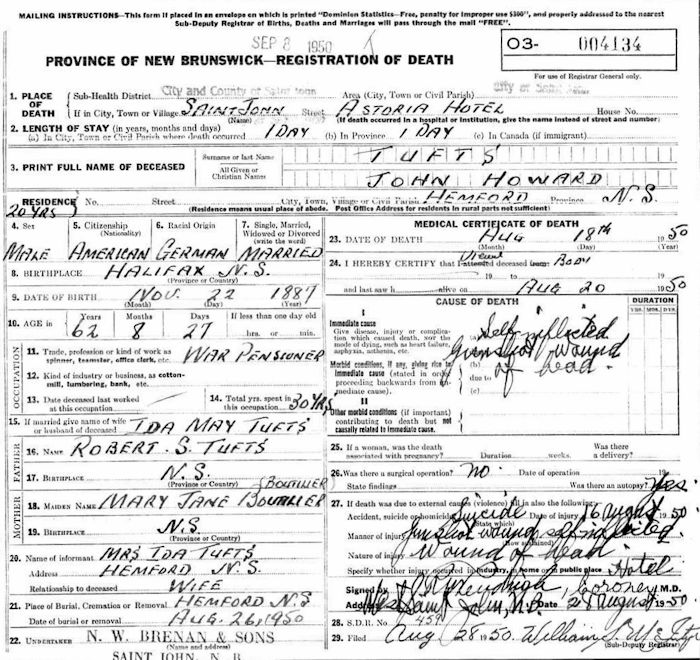 MAILING INSTRUCTIONS—This form if placed in an envelope on which is printed "Dominion Statistics—Free, penalty for improper use $300", and properly addressed to the nearest
Sub-Deputy Registrar of Births, Deaths and Marriages will pass through the mail "FREE".
SEP 8 1950
O3- 004134
PROVINCE OF NEW BRUNSWICK—REGISTRATION OF DEATH
For use of Registrar General only.
1. PLACE OF DEATH
Sub-Health District City and County of Saint John Area (City, Town or Civil Parish) City of Saint John
If in City, Town or Village SAINT JOHN Street ASTORIA HOTEL House No.
(Name) (If death occurred in a hospital or institution, give the name instead of street and number)
2. LENGTH OF STAY (in years, months and days)
(a) In City, Town or Civil Parish where death occurred 1 DAY (b) In Province 1 DAY (c) In Canada (if immigrant)
3. PRINT FULL NAME OF DECEASED
Surname or last Name TUFTS
All Given or Christian Names JOHN HOWARD
RESIDENCE No. Street City, Town, Village or Civil Parish HEMFORD Province N.S.
20 YRS) (Residence means usual place of abode. Post Office Address for residents in rural parts not sufficient)
4. Sex 5. Citizenship (Nationality) 6. Racial Origin 7. Single, Married, Widowed or Divorced (write the word)
MALE AMERICAN GERMAN MARRIED
8. BIRTHPLACE HALIFAX N.S.
(Province or Country)
9. DATE OF BIRTH NOV. 22 1887
(Month) (Day) (Year)
10. AGE in Years Months Days If less than one day old
62 8 27 hrs. or min.
OCCUPATION
11. Trade, profession or kind of work as spinner, teamster, office clerk, etc. WAR PENSIONER
12. Kind of industry or business, as cotton-mill, lumbering, bank, etc.
13. Date deceased last worked at this occupation 14. Total yrs. spent in this occupation 30 YRS
15. If married give name of wife or husband of deceased IDA MAY TUFTS
FATHER
16. NAME ROBERT S. TUFTS
17. BIRTHPLACE N.S.
(Province or Country) (BOUTILIER
MOTHER
18. MAIDEN NAME MARY JANE
19. BIRTHPLACE N.S.
(Province or Country)
20. Name of informant MRS IDA TUFTS
Address HEMFORD N.S.
Relationship to deceased WIFE
21. Place of Burial, Cremation or Removal HEMFORD N.S
Date of burial or removal AUG. 26, 1950
22. UNDERTAKER N. W. BRENAN & SONS
(Name and address)
SAINT JOHN, N. B.
MEDICAL CERTIFICATE OF DEATH
23. DATE OF DEATH AUG 18th 1950
(Month) (Day) (Year)
24. I HEREBY CERTIFY that I attended deceased from Viewed Body
19 to 19
and last saw h alive on AUG 20 1950
CAUSE OF DEATH DURATION
YRS. MOS. DYS.
I
Immediate cause
Give disease, injury or complication which caused death, not the mode of dying, such as heart failure, asphyxia, asthenia, etc.
(a) Self inflicted
gunshot wound
of head.
Morbid conditions, if any, giving rise to immediate cause (stated in order proceeding backwards from immediate cause).
due to (b)
due to (c)
II
Other morbid conditions (if important) contributing to death but not causally related to immediate cause.
25. If a woman, was the death associated with pregnancy? Was there a delivery?
26. Was there surgical operation? No. Date of operation 19
State findings Was there an autopsy? Yes.
27. If death was due to external causes (violence) fill in also the following:
Accident, suicide or homicide Suicide Date of injury 16 August 1950
(State which)
Manner of injury Gunshot wound, self inflicted
(How sustained)
Nature of injury Wound of head
Specify whether injury occurred in industry, in home or in public place Hotel
Signed by Coroner M.D.
Address Saint John, N.B. Date 28 August 1950
28. S.D.R. No. 459
29. Filed Aug 28 1950. William S.
(Sub-Deputy Registrar)